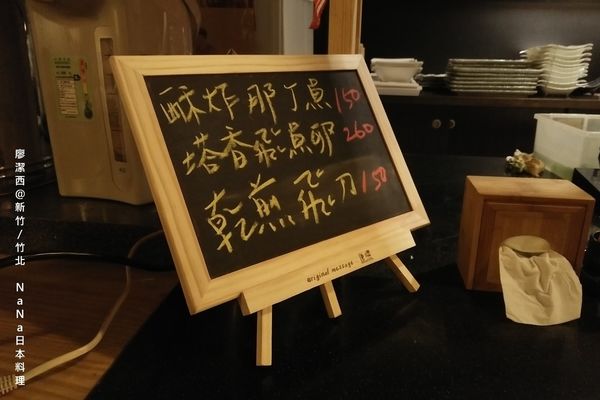 酥炸那丁魚150
塔香飛魚卵260
乾煎飛刀150
original message
廖潔西@新竹/竹北 NaNa日本料理